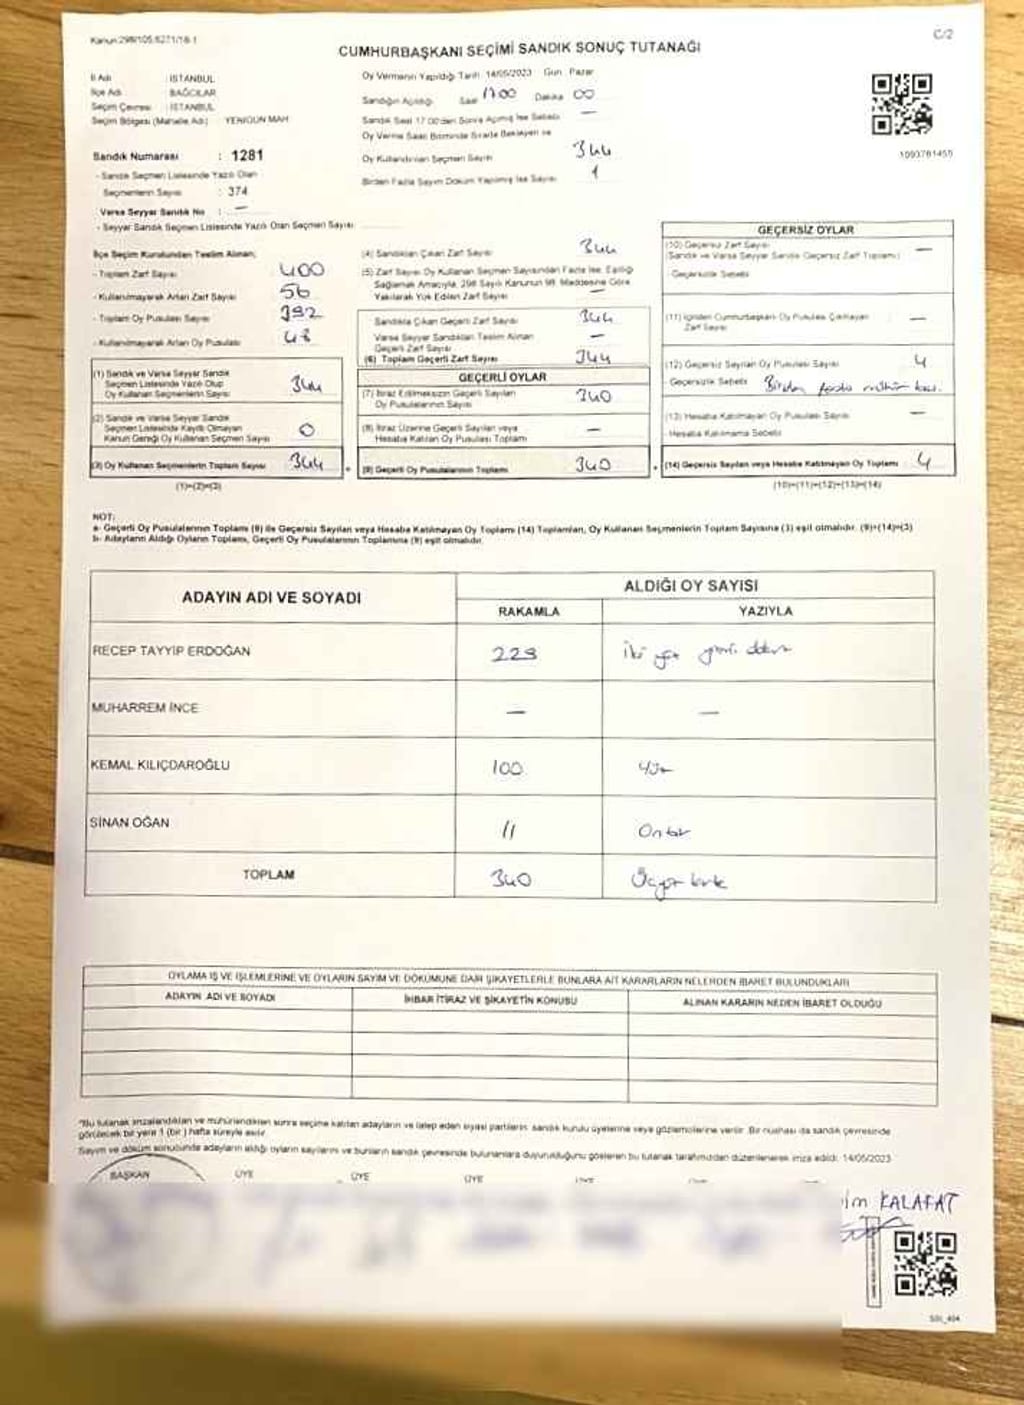 Kanun:298/105,6271/18-1
C/2
CUMHURBAŞKANI SEÇİMİ SANDIK SONUÇ TUTANAĞI
İl Adı : İSTANBUL
İlçe Adı : BAĞCILAR
Seçim Çevresi : İSTANBUL
Seçim Bölgesi (Mahalle Adı) : YENİGÜN MAH
Sandık Numarası : 1281
- Sandık Seçmen Listesinde Yazılı Olan
Seçmenlerin Sayısı : 374
Varsa Seyyar Sandık No : —
- Seyyar Sandık Seçmen Listesinde Yazılı Olan Seçmen Sayısı
Oy Vermenin Yapıldığı Tarih 14/05/2023 Gün Pazar
Sandığın Açıldığı Saat 17.00 Dakika 00
Sandık Saat 17.00'den Sonra Açılmış İse Sebebi —
Oy Verme Saati Bitiminde Sırada Bekleyen ve
Oy Kullandırılan Seçmen Sayısı 344
Birden Fazla Sayım Döküm Yapılmış İse Sayısı 1
1093761455
İlçe Seçim Kurulundan Teslim Alınan;
- Toplam Zarf Sayısı 400
- Kullanılmayarak Artan Zarf Sayısı 56
- Toplam Oy Pusulası Sayısı 392
- Kullanılmayarak Artan Oy Pusulası 48
(1) Sandık ve Varsa Seyyar Sandık
Seçmen Listesinde Yazılı Olup
Oy Kullanan Seçmenlerin Sayısı 344
(2) Sandık ve Varsa Seyyar Sandık
Seçmen Listesinde Kayıtlı Olmayan
Kanun Gereği Oy Kullanan Seçmen Sayısı 0
(3) Oy Kullanan Seçmenlerin Toplam Sayısı 344
(1)+(2)=(3)
(4) Sandıktan Çıkan Zarf Sayısı 344
(5) Zarf Sayısı Oy Kullanan Seçmen Sayısından Fazla İse, Eşitliği
Sağlamak Amacıyla, 298 Sayılı Kanunun 98. Maddesine Göre
Yakılarak Yok Edilen Zarf Sayısı —
Sandıkta Çıkan Geçerli Zarf Sayısı 344
Varsa Seyyar Sandıktan Teslim Alınan
Geçerli Zarf Sayısı —
(6) Toplam Geçerli Zarf Sayısı 344
GEÇERLİ OYLAR
(7) İtiraz Edilmeksizin Geçerli Sayılan
Oy Pusulalarının Sayısı 340
(8) İtiraz Üzerine Geçerli Sayılan veya
Hesaba Katılan Oy Pusulası Toplamı —
(9) Geçerli Oy Pusulalarının Toplamı 340
GEÇERSİZ OYLAR
(10) Geçersiz Zarf Sayısı —
(Sandık ve Varsa Seyyar Sandık Geçersiz Zarf Toplamı)
- Geçersizlik Sebebi
(11) İçinden Cumhurbaşkanı Oy Pusulası Çıkmayan
Zarf Sayısı —
(12) Geçersiz Sayılan Oy Pusulası Sayısı 4
- Geçersizlik Sebebi Birden fazla mühür
(13) Hesaba Katılmayan Oy Pusulası Sayısı —
- Hesaba Katılmama Sebebi
(14) Geçersiz Sayılan veya Hesaba Katılmayan Oy Toplamı 4
(10)+(11)+(12)+(13)=(14)
NOT:
a- Geçerli Oy Pusulalarının Toplamı (9) ile Geçersiz Sayılan veya Hesaba Katılmayan Oy Toplamı (14) Toplamları, Oy Kullanan Seçmenlerin Toplam Sayısına (3) eşit olmalıdır. (9)+(14)=(3)
b- Adayların Aldığı Oyların Toplamı, Geçerli Oy Pusulalarının Toplamına (9) eşit olmalıdır.
ADAYIN ADI VE SOYADI
ALDIĞI OY SAYISI
RAKAMLA YAZIYLA
RECEP TAYYİP ERDOĞAN 229 iki yüz yirmi dokuz
MUHARREM İNCE — —
KEMAL KILIÇDAROĞLU 100 yüz
SİNAN OĞAN 11 Onbir
TOPLAM 340 Üçyüz kırk
OYLAMA İŞ VE İŞLEMLERİNE VE OYLARIN SAYIM VE DÖKÜMÜNE DAİR ŞİKAYETLERLE BUNLARA AİT KARARLARIN NELERDEN İBARET BULUNDUKLARI
ADAYIN ADI VE SOYADI İHBAR İTİRAZ VE ŞİKAYETİN KONUSU ALINAN KARARIN NEDEN İBARET OLDUĞU
*Bu tutanak imzalandıktan ve mühürlendikten sonra seçime katılan adayların ve talep eden siyasi partilerin sandık kurulu üyelerine veya gözlemcilerine verilir. Bir nüshası da sandık çevresinde
görülecek bir yere 1 (bir) hafta süreyle asılır.
Sayım ve döküm sonucunda adayların aldığı oyların sayılarını ve bunların sandık çevresinde bulunanlara duyurulduğunu gösteren bu tutanak tarafımızdan düzenlenerek imza edildi. 14/05/2023
BAŞKAN ÜYE ÜYE ÜYE ÜYE ÜYE
KALAFAT